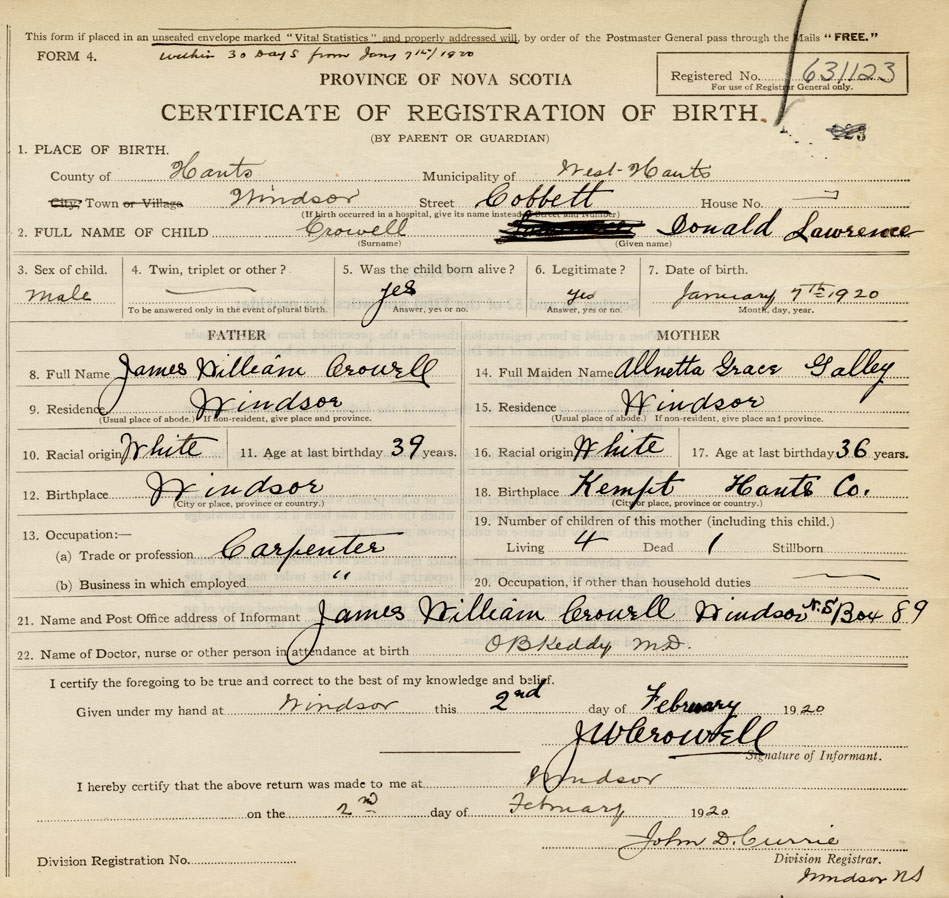 This form if placed in an unsealed envelope marked "Vital Statistics" and properly addressed will, by order of the Postmaster General pass through the Mails "FREE."
FORM 4. within 30 Days from Jany 7th/1920
PROVINCE OF NOVA SCOTIA
Registered No. 631123
For use of Registrar General only.
CERTIFICATE OF REGISTRATION OF BIRTH.
(BY PARENT OR GUARDIAN)
123
1. PLACE OF BIRTH.
County of Hants Municipality of West-Hants
City, Town or Village Windsor Street Cobbett House No.
(If birth occurred in a hospital, give its name instead of Street and Number)
2. FULL NAME OF CHILD Crowell Donald Lawrence
(Surname) (Given name)
3. Sex of child. 4. Twin, triplet or other? 5. Was the child born alive? 6. Legitimate? 7. Date of birth.
Male yes yes January 7th 1920
To be answered only in the event of plural birth. Answer, yes or no. Answer, yes or no. Month, day, year.
FATHER MOTHER
8. Full Name James William Crowell 14. Full Maiden Name Allnetta Grace Galley
9. Residence Windsor 15. Residence Windsor
(Usual place of abode.) If non-resident, give place and province. (Usual place of abode.) If non-resident, give place and province.
10. Racial origin White 11. Age at last birthday 39 years. 16. Racial origin White 17. Age at last birthday 36 years.
12. Birthplace Windsor 18. Birthplace Kempt Hants Co.
(City or place, province or country.) (City or place, province or country.)
13. Occupation:— 19. Number of children of this mother (including this child.)
(a) Trade or profession Carpenter Living 4 Dead 1 Stillborn
(b) Business in which employed " 20. Occupation, if other than household duties.
21. Name and Post Office address of Informant James William Crowell Windsor N.S. Box 89
22. Name of Doctor, nurse or other person in attendance at birth O B Keddy M.D.
I certify the foregoing to be true and correct to the best of my knowledge and belief.
Given under my hand at Windsor this 2nd day of February 1920
J W Crowell
Signature of Informant.
I hereby certify that the above return was made to me at Windsor
on the 2nd day of February 1920
John D. Currie
Division Registration No. Division Registrar.
Windsor NS